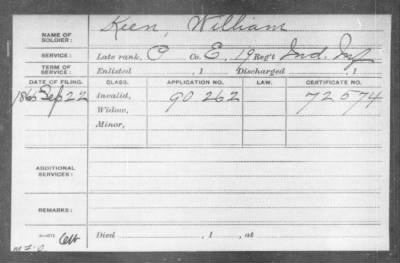 NAME OF SOLDIER: Keen, William
SERVICE: Late rank, C Co. E, 19 Reg't Ind. Inf
TERM OF SERVICE: Enlisted , 1 Discharged , 1
DATE OF FILING. CLASS. APPLICATION NO. LAW. CERTIFICATE NO.
1865 Sep 22 Invalid, 90 262 72 574
Widow,
Minor,
ADDITIONAL SERVICES:
REMARKS:
Died , 1 , at